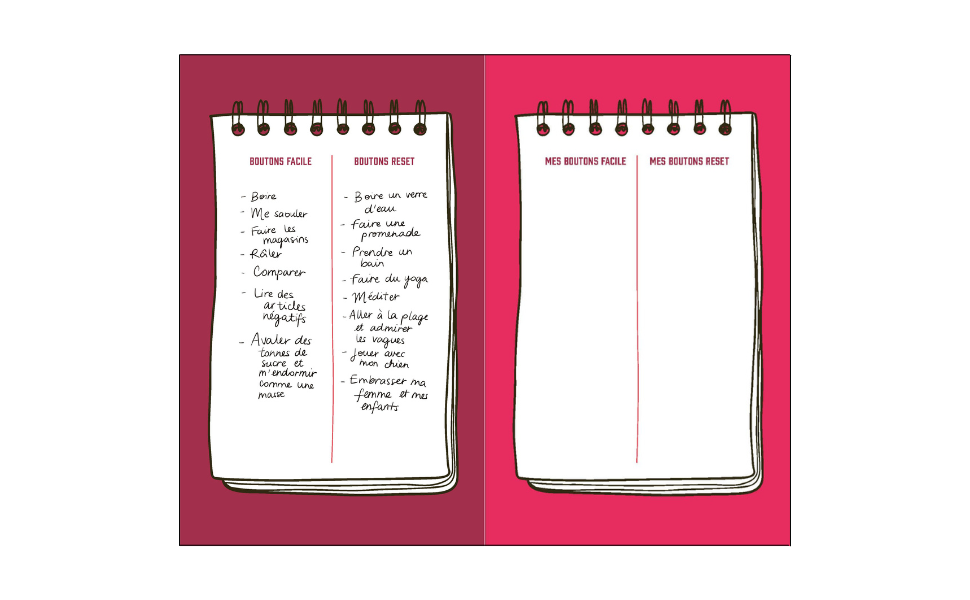 BOUTONS FACILE
- Boire
- Me saouler
- Faire les
magasins
- Râler
- Comparer
- Lire des
articles
négatifs
- Avaler des
tonnes de
sucre et
m'endormir
comme une
masse
BOUTONS RESET
- Boire un verre
d'eau
- Faire une
promenade
- Prendre un
bain
- Faire du yoga
- Méditer
- Aller à la plage
et admirer
les vagues
- Jouer avec
mon chien
- Embrasser ma
femme et mes
enfants
MES BOUTONS FACILE
MES BOUTONS RESET